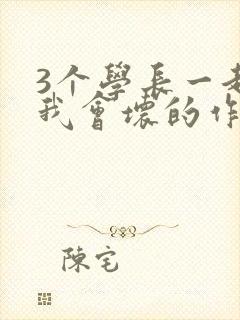 3个學長一起
我會壞的作
陳宅